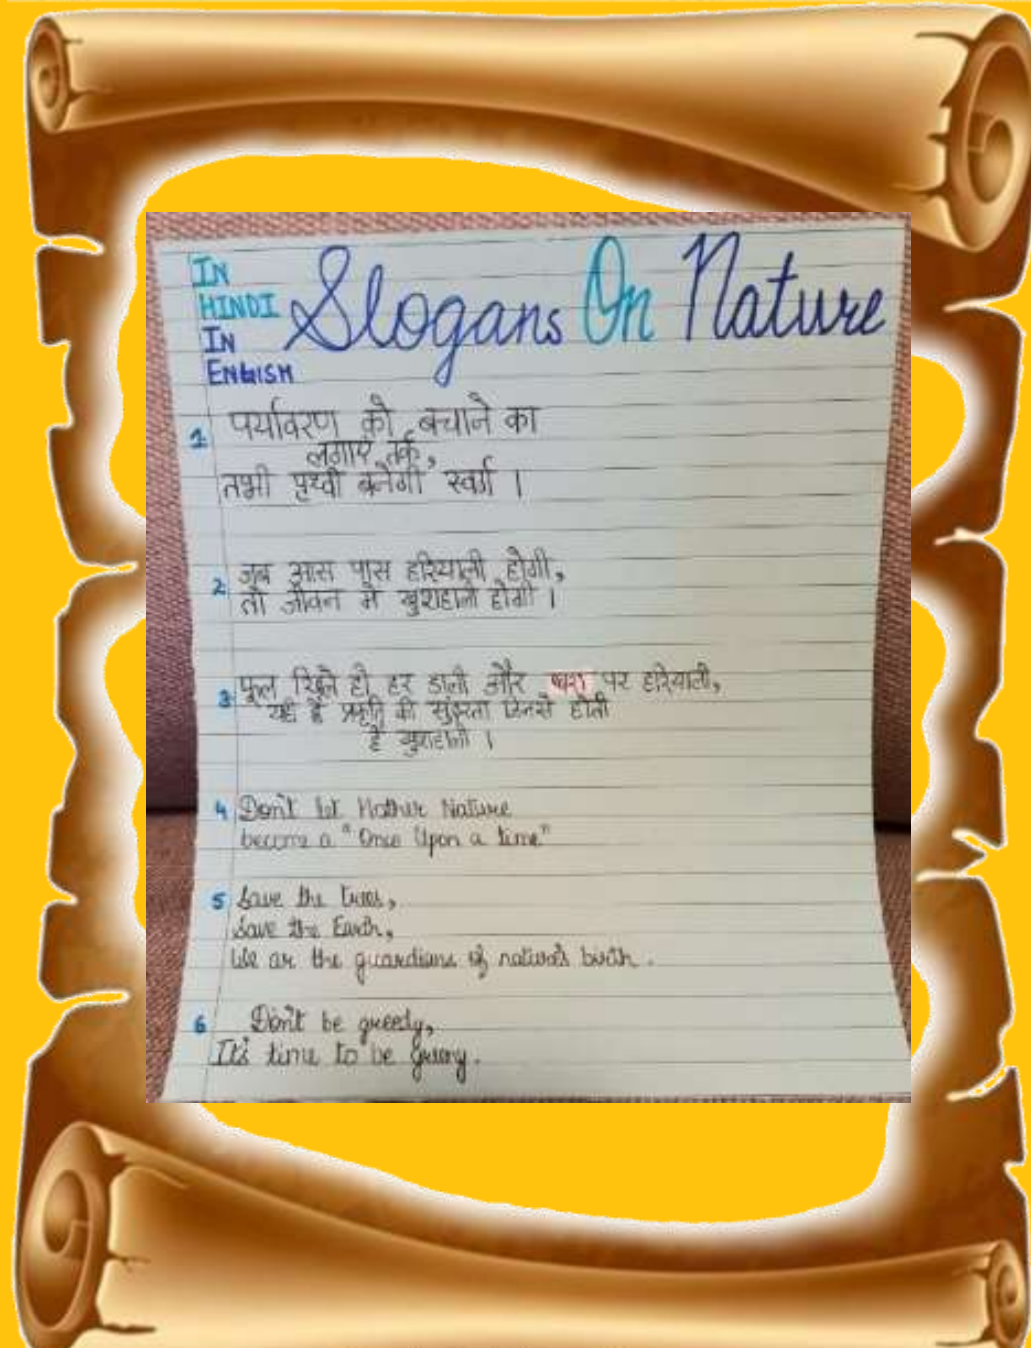 IN
HINDI
IN
ENGLISH
Slogans On Nature
1. पर्यावरण को बचाने का
लगाए तर्क,
तभी पृथ्वी बनेगी स्वर्ग ।
2. जब आस पास हरियाली होगी,
तो जीवन में खुशहाली होगी ।
3. फूल खिले हो हर डाली और धरा पर हरियाली,
यही है प्रकृति की सुंदरता जिनसे होती
है खुशहाली ।
4 Don't let Mother Nature
become a "Once Upon a time"
5 Save the trees,
Save the Earth,
We ar the guardians of nature's birth.
6 Don't be greedy,
It's time to be greeny.